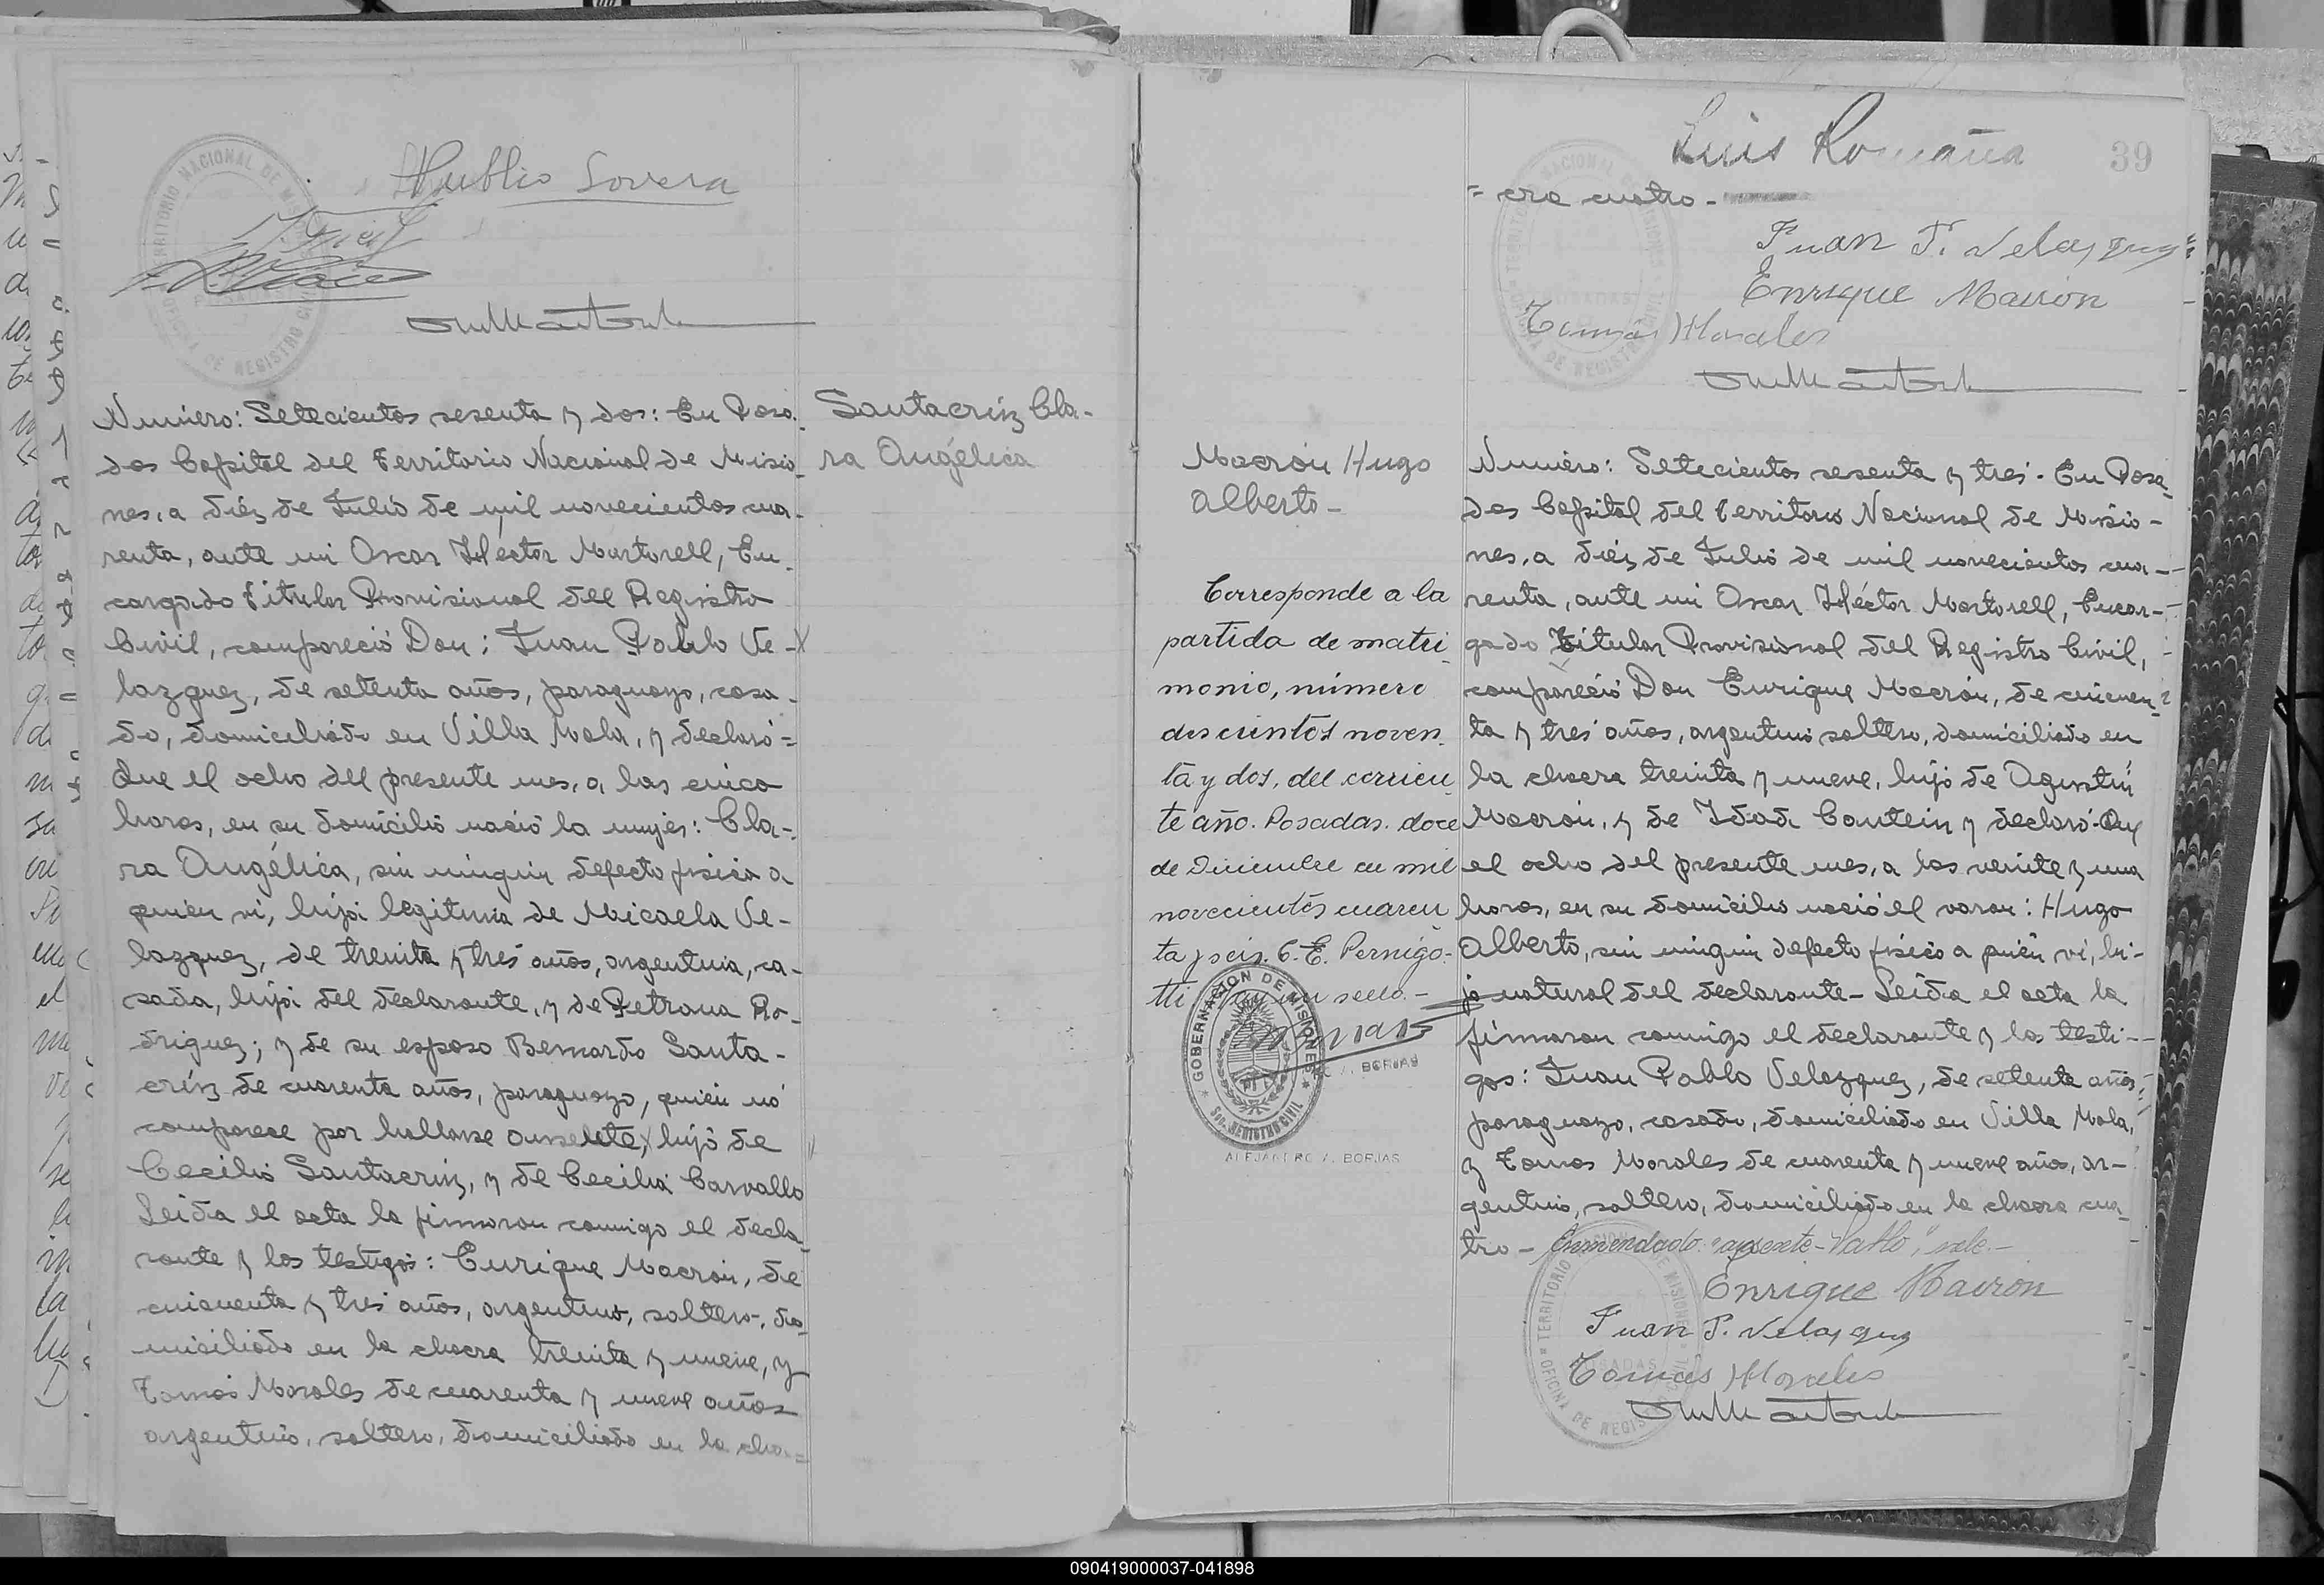 Publio Lovera
Numéro: Setecientos sesenta y dos: En Posa-
das Capital del Territorio Nacional de Misio-
nes, a diéz de Julio de mil novecientos cua-
renta, ante mi Oscar Héctor Martorell, En-
cargado Titular Provisional del Registro
Civil, compareció Don: Juan Pablo Ve-
lazquez, de setenta años, paraguayo, casa-
do, domiciliado en Villa Mola, y declaró=
Que el ocho del presente mes, a las cinco
horas, en su domicilio nació la mujer: Cla-
ra Angélica, sin ningun defecto fisico a
quién vi, hija legitima de Micaela Ve-
lazquez, de treinta y tres años, argentina, ca-
sada, hija del declarante, y de Petrona Ro-
driguez; y de su esposo Bernardo Santa-
crúz de cuarenta años, paraguayo, quién nó
comparece por hallarse ausente, hijo de
Cecilio Santacruz, y de Cecilia Carvallo
Leida el acta la firmaron conmigo el decla-
rante y los testigos: Enrique Macrón, de
cincuenta y tres años, argentino, soltero, do-
miciliado en la chacra treinta y nueve, y
Tomás Morales de cuarenta y nueve años
argentino, soltero, domiciliado en la cha=
Santacrúz Cla-
ra Angélica
39
Luis Romaña
= cra cuatro -
Juan P. Velazquez
Enrique Macron
Tomás Morales
Macrón Hugo
Alberto -
Corresponde a la
partida de matri
monio, número
doscientos noven
ta y dos, del corrien
te año. Posadas. doce
de Diciembre de mil
novecientos cuaren
ta y seis. C. E. Pernigo-
tti hay un sello. -
GOBERNACION DE MISIONES
Sec. REGISTRO CIVIL
ALEJANDRO A. BORJAS
Numéro: Setecientos sesenta y tres - En Posa-
das Capital del Territorio Nacional de Misio-
nes, a diéz de Julio de mil novecientos cua-
renta, ante mi Oscar Héctor Martorell, Encar-
gado Titular Provisional del Registro Civil,
compareció Don Enrique Macrón, de cincuen-
ta y tres años, argentino soltero, domiciliado en
la chacra treinta y nueve, hijo de Agustin
Macrón, y de Idada Contein y declaró-Que
el ocho del presente mes, a las veinte y una
horas, en su domicilio nació el varon: Hugo
Alberto, sin ningun defecto fisico a quién vi, hi-
jo natural del declarante - Leida el acta la
firmaron conmigo el declarante y los testi-
gos: Juan Pablo Velazquez, de setenta años,
paraguayo, casado, domiciliado en Villa Mola,
y Tomas Morales de cuarenta y nueve años, ar-
gentino, soltero, domiciliado en la chacra cua-
tro - Enmendado: "ausente - Pablo", vale. -
Enrique Macron
Juan P. Velazquez
Tomás Morales
090419000037-041898